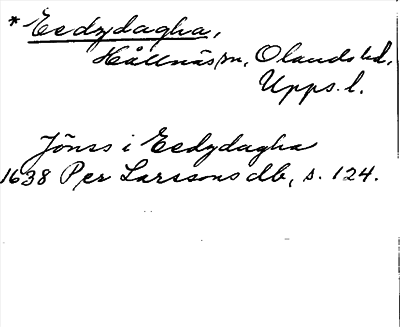 * Eedydagha,
Hållnäs sn, Olands hd,
Upps. l.
Jönss i Eedydagha
1638 Per Larssons db, s. 124.